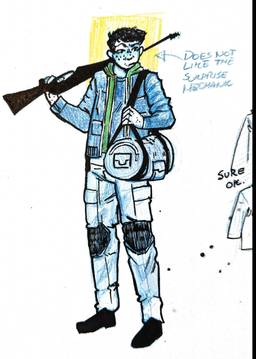 DOES NOT
LIKE THE
SURPRISE
MECHANIC
SURE
OK.